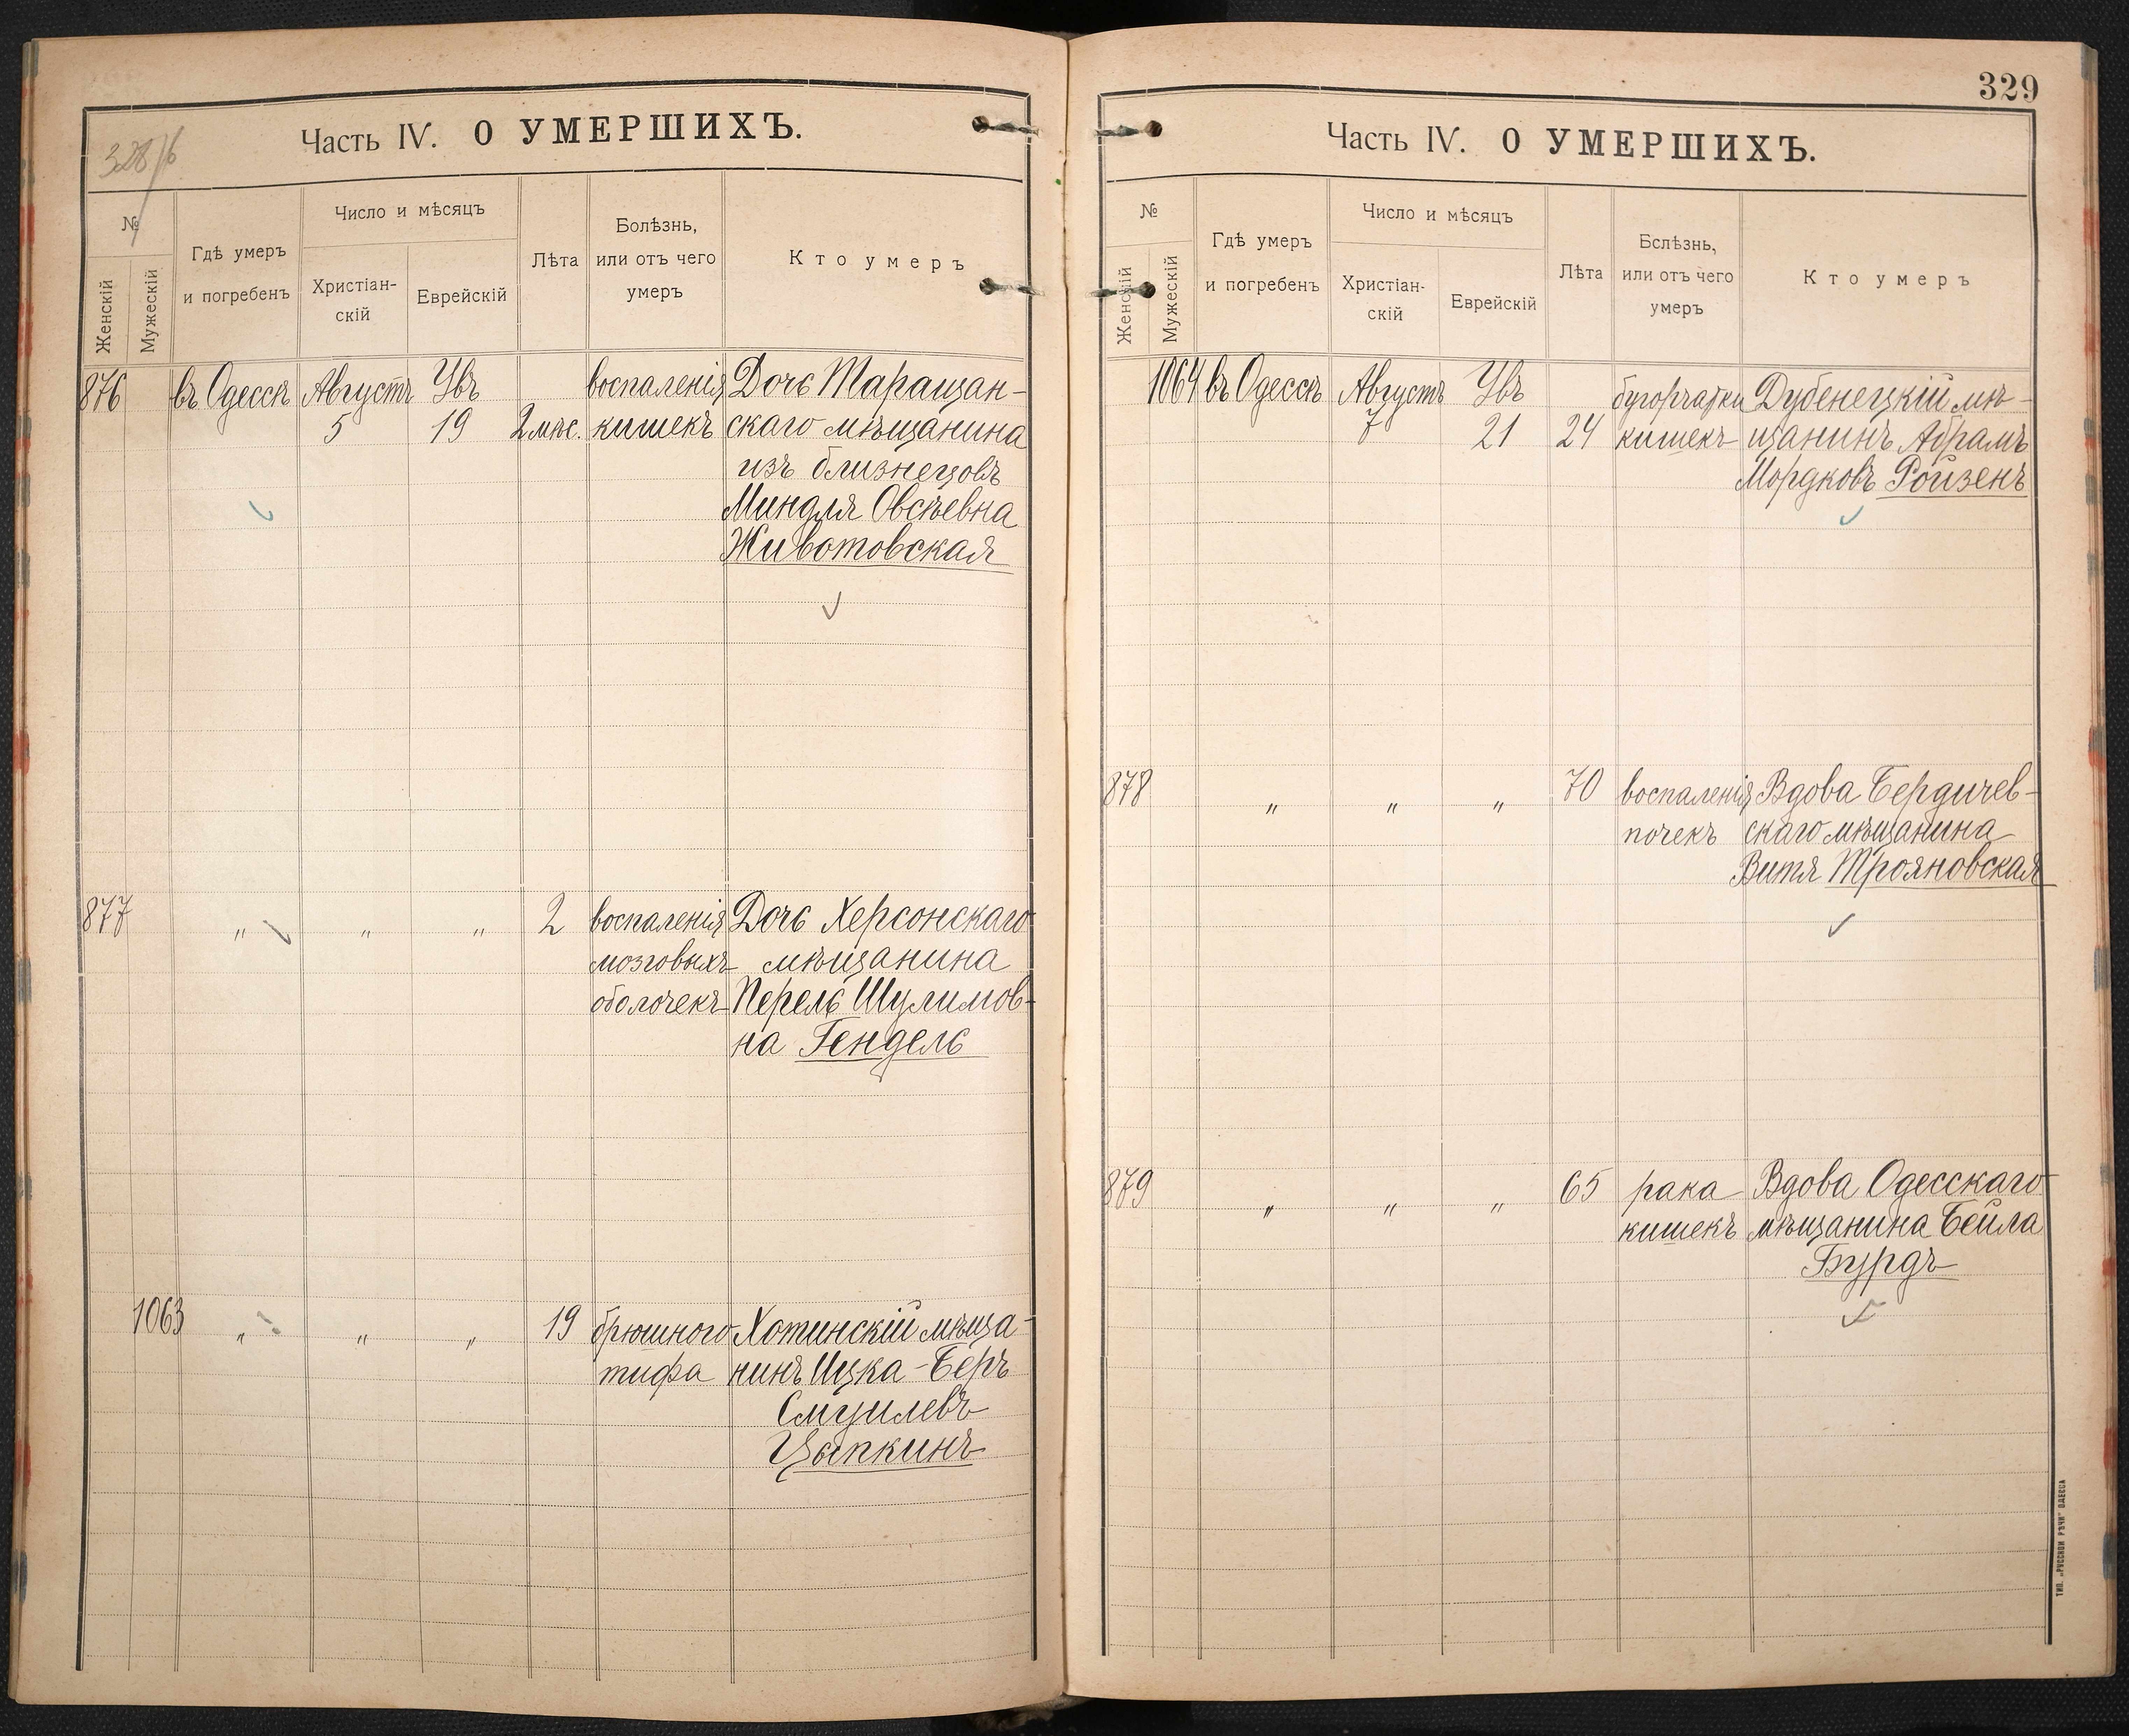 328/б
Часть IV. О УМЕРШИХЪ.
№
Женскій
Мужескій
Гдѣ умеръ
и погребенъ
Число и мѣсяцъ
Христіан-
скій
Еврейскій
Лѣта
Болѣзнь,
или отъ чего
умеръ
Кто умеръ
876 въ Одессѣ Августъ Увъ воспаленія Дочь Таращан-
5 19 2 мѣс. кишекъ скаго мѣщанина
изъ близнецовъ
Миндля Овсѣевна
Животовская
877 „ „ „ 2 воспаленія Дочь Херсонскаго
мозговыхъ мѣщанина
оболочекъ Перель Шулимов-
на Гендель
1063 „ „ „ 19 брюшного Хотинскій мѣща-
тифа нинъ Ицка-Беръ
Смуилевъ
Цыпкинъ
329
Часть IV. О УМЕРШИХЪ.
№
Женскій
Мужескій
Гдѣ умеръ
и погребенъ
Число и мѣсяцъ
Христіан-
скій
Еврейскій
Лѣта
Бслѣзнь,
или отъ чего
умеръ
Кто умеръ
1064 въ Одессѣ Августъ Увъ бугорчатки Дубенецкій мѣ-
7 21 24 кишекъ щанинъ Абрамъ
Мордковъ Ройзенъ
878 „ „ „ 70 воспаленія Вдова Бердичев-
почекъ скаго мѣщанина
Витя Трояновская
879 „ „ „ 65 рака Вдова Одесскаго
кишекъ мѣщанина Бейла
Бурдъ
ТИП. „РУССКОЙ РѢЧИ" ОДЕССА